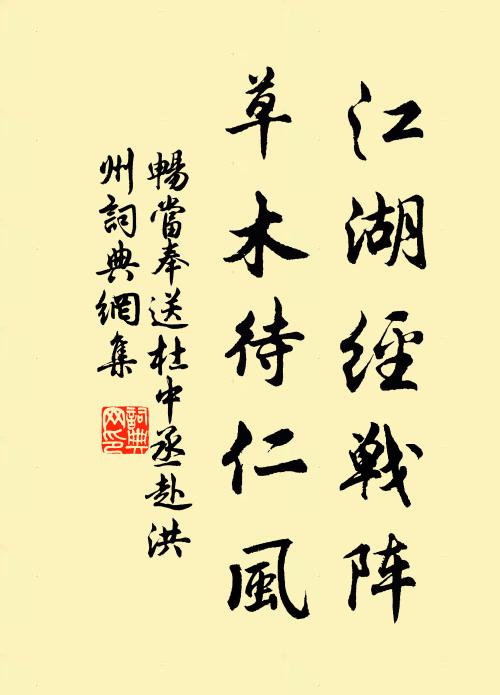 江湖經戦阵
草木待仁風
暢當奉送杜中丞赴洪
州詞典網集
詞典网印